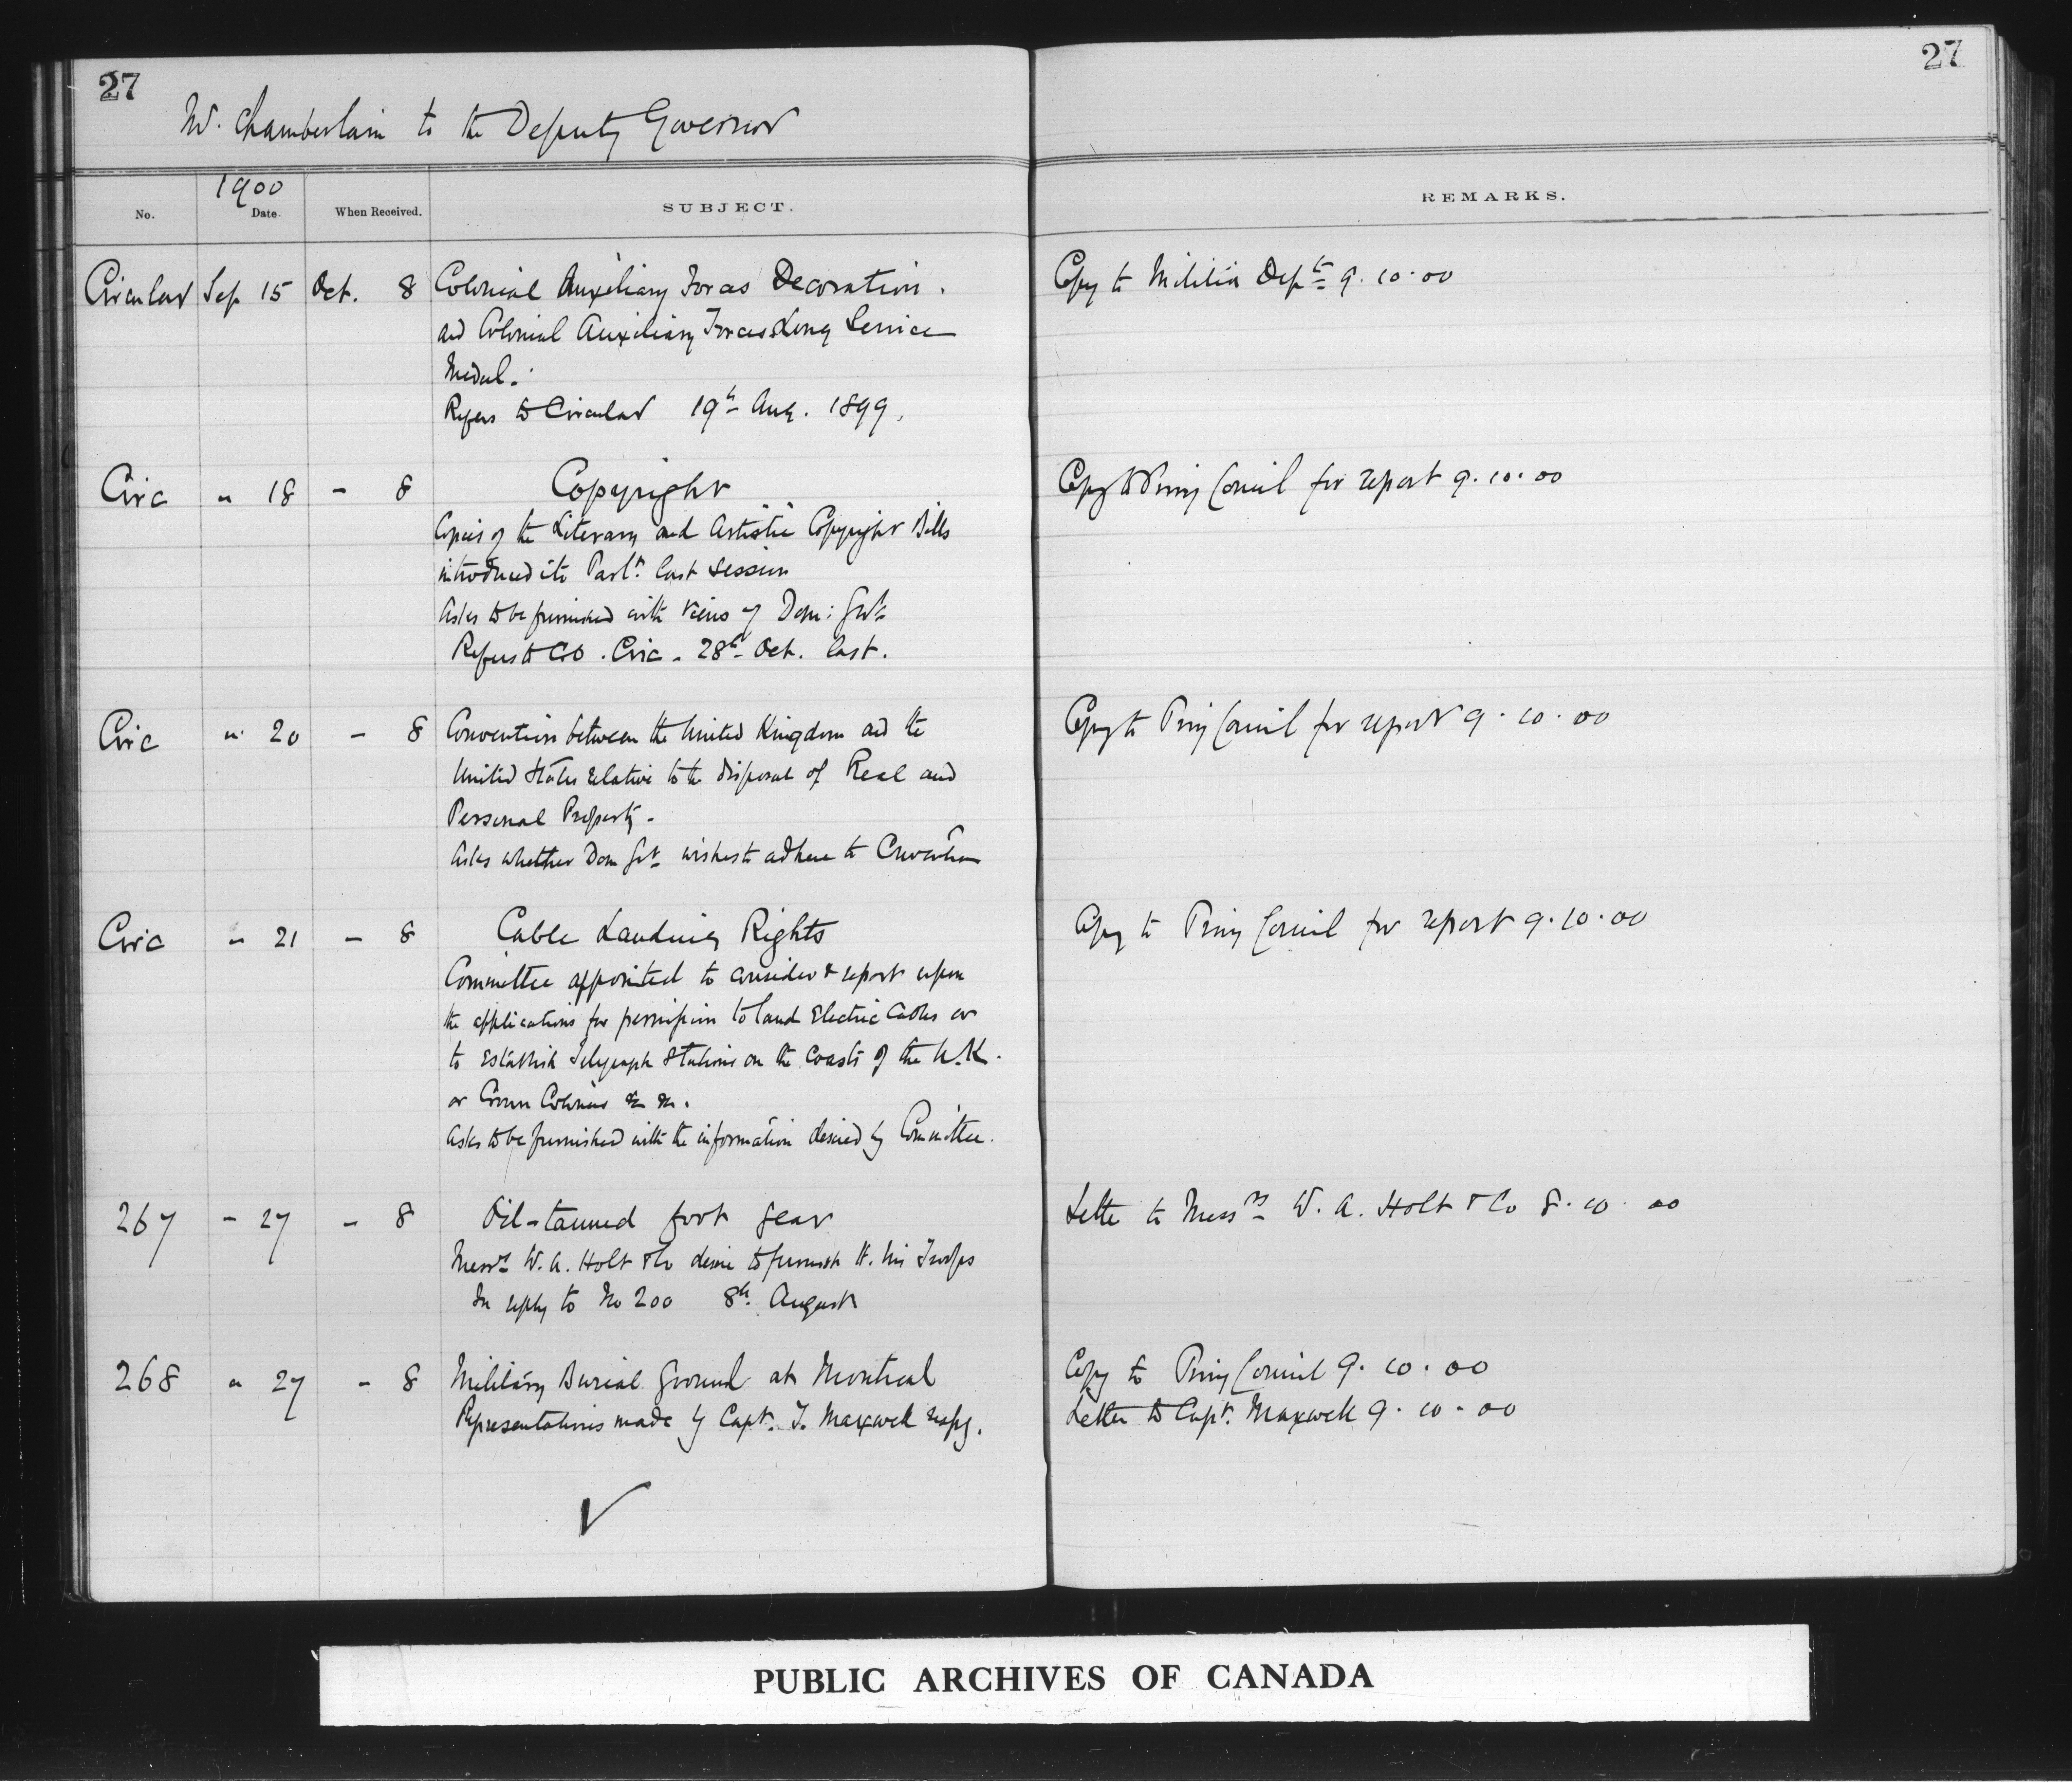 27
27
Mr. Chamberlain to the Deputy Governor
1900
No. Date. When Received. SUBJECT. REMARKS.
Circular Sep 15 Oct. 8 Colonial Auxiliary Forces Decoration. Copy to Militia Dept 9.10.00
and Colonial Auxiliary Forces Long Service
Medal.
Refers to Circular 19th Aug. 1899.
Circ " 18 - 8 Copyright Copy to Privy Council for report 9.10.00
Copies of the Literary and Artistic Copyright Bills
introduced into Parlt. last session
Asks to be furnished with views of Dom: Govt.
Refers to CO. Circ. 28th Oct. last.
Circ " 20 - 8 Convention between the United Kingdom and the Copy to Privy Council for report 9.10.00
United States relative to the disposal of Real and
Personal Property.
Asks whether Dom Govt wishes to adhere to Convention
Circ " 21 - 8 Cable Landing Rights Copy to Privy Council for report 9.10.00
Committee appointed to consider & report upon
the applications for permission to land Electric Cables or
to establish Telegraph Stations on the Coasts of the U.K.
or Crown Colonies &c &c.
Asks to be furnished with the information desired by Committee.
267 - 27 - 8 Oil-tanned foot gear Letter to Messrs W. A. Holt & Co 8.10.00
Messrs W. A. Holt & Co desire to furnish H. M's Troops
In reply to No 200 8th August
268 " 27 - 8 Military Burial Ground at Montreal Copy to Privy Council 9.10.00
Representations made by Capt. T. Maxwell respg. Letter to Capt. Maxwell 9.10.00
PUBLIC ARCHIVES OF CANADA